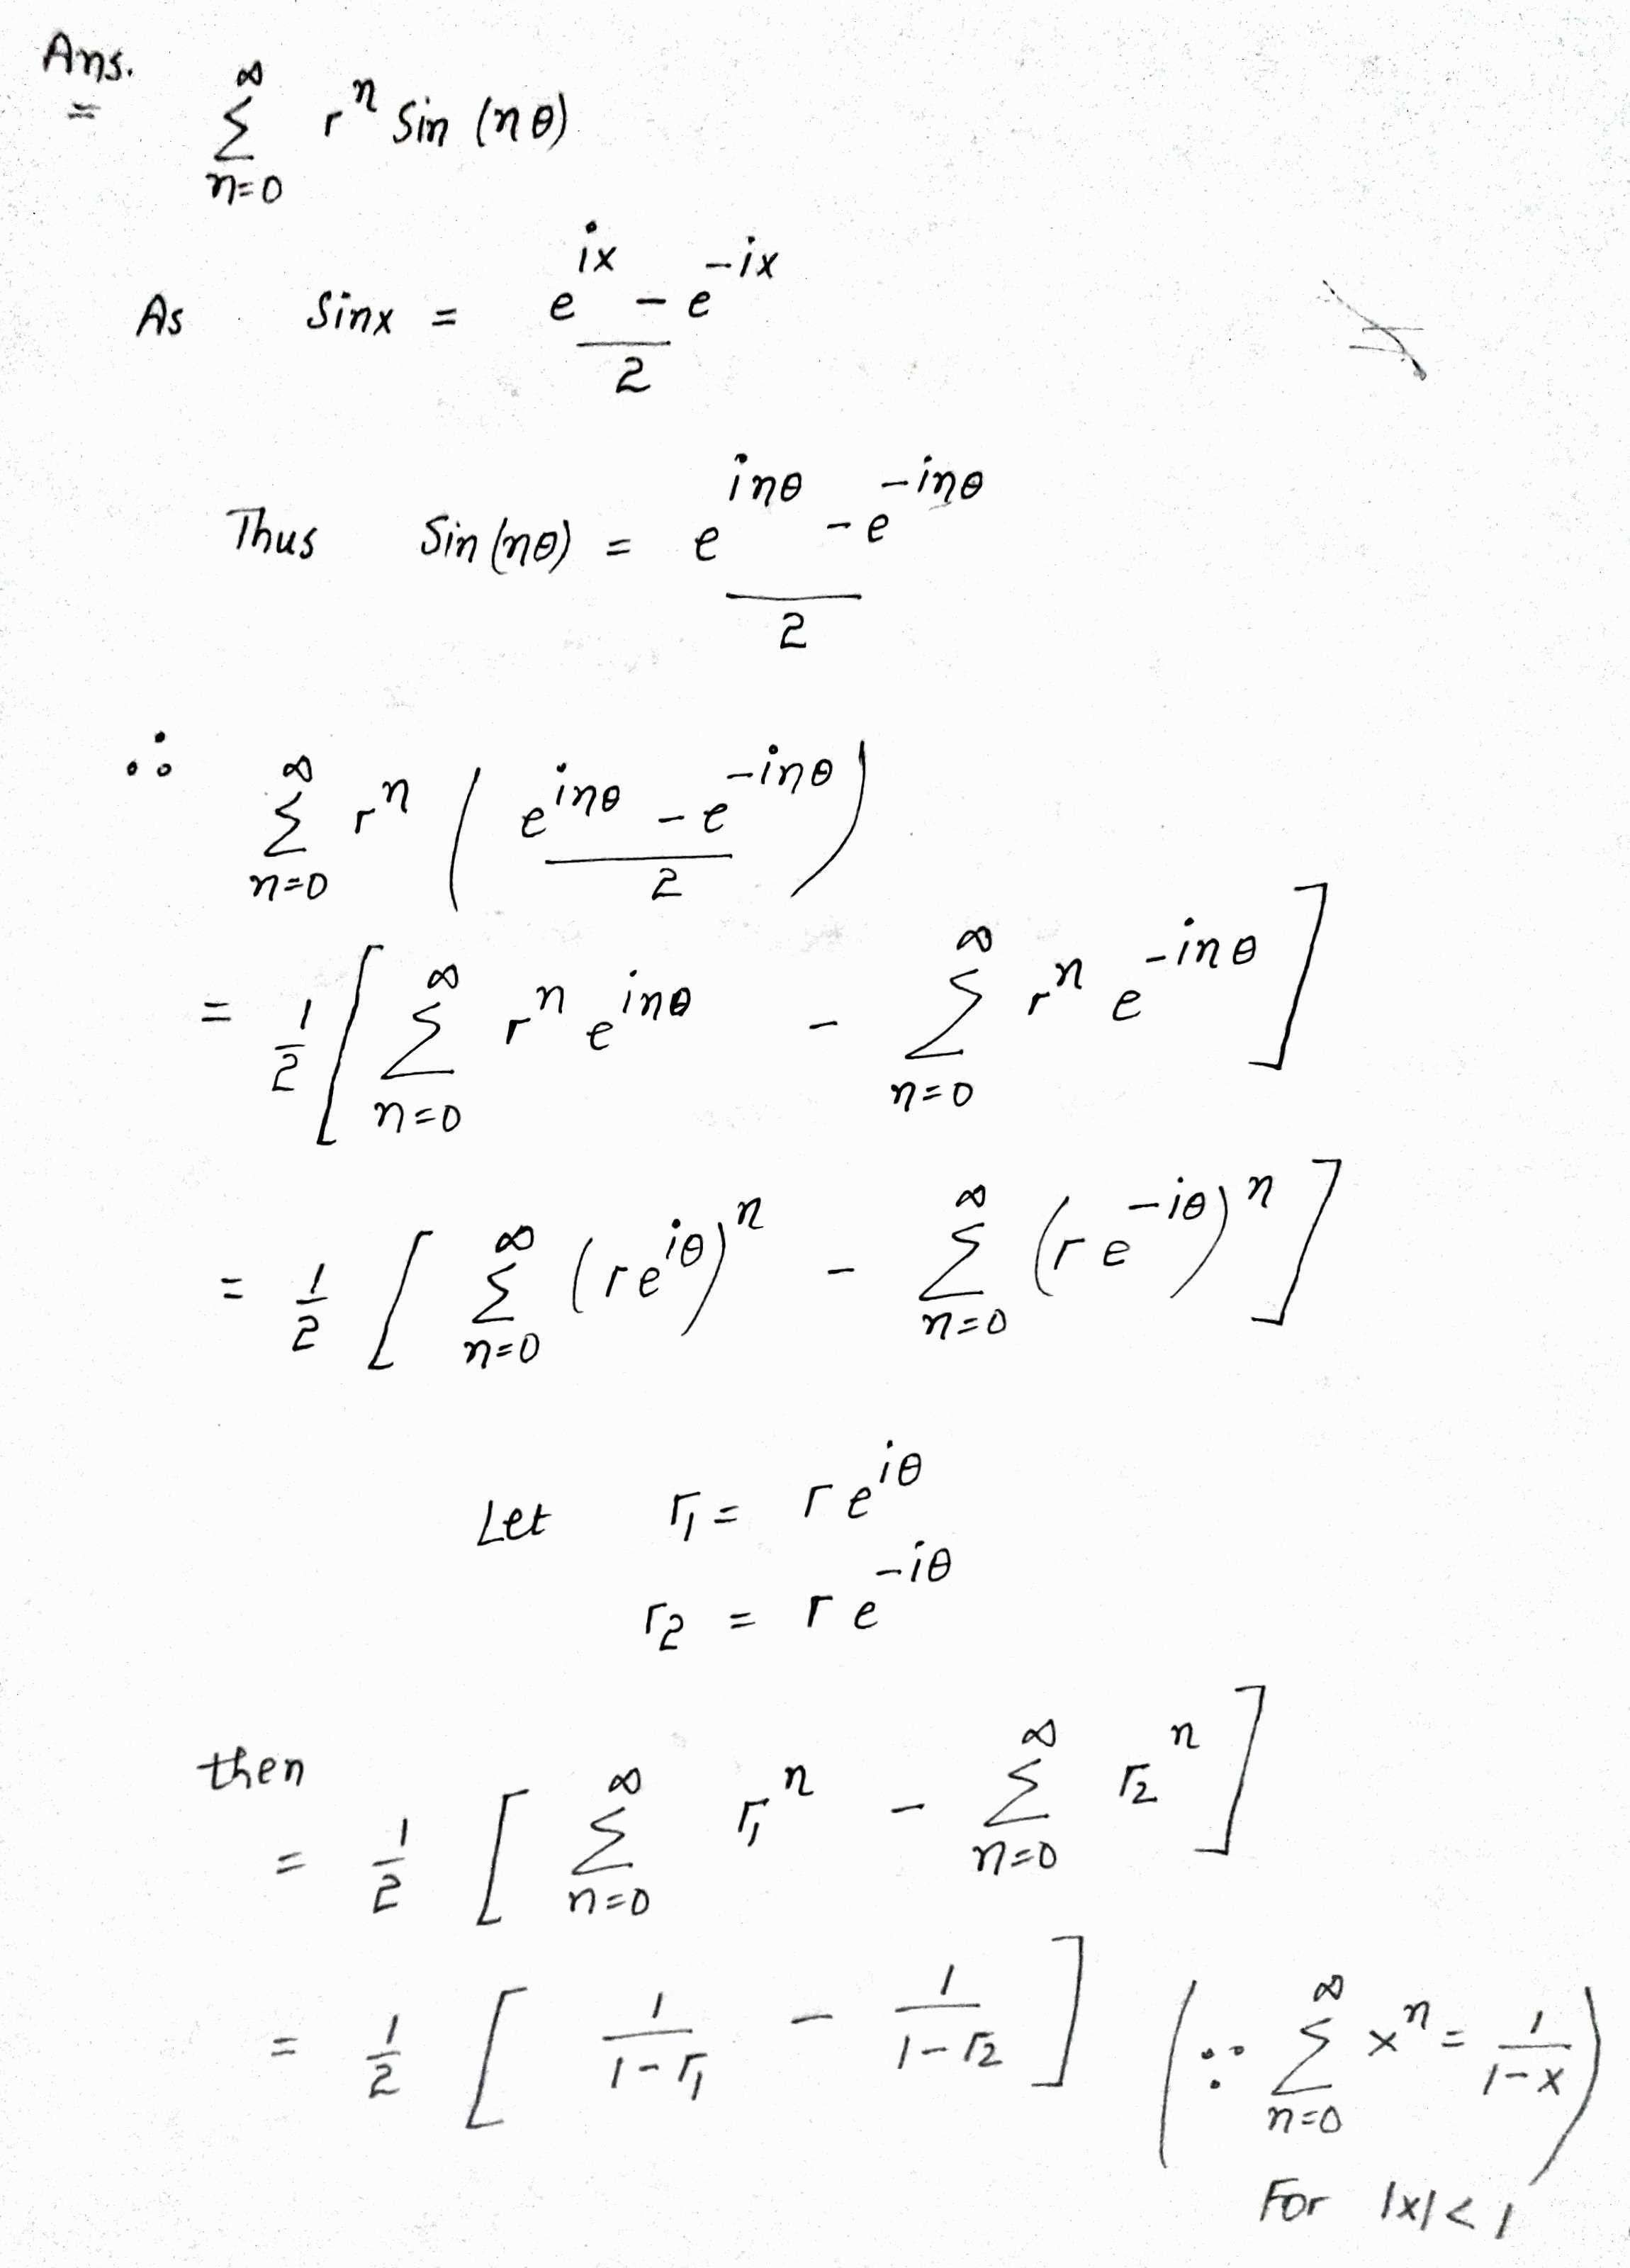 Ans.
= ∞ Σ n=0 r^n Sin (nθ)
As Sinx = (e^{ix} - e^{-ix}) / 2
Thus Sin(nθ) = (e^{inθ} - e^{-inθ}) / 2
∴ ∞ Σ n=0 r^n ( (e^{inθ} - e^{-inθ}) / 2 )
= 1/2 [ ∞ Σ n=0 r^n e^{inθ} - ∞ Σ n=0 r^n e^{-inθ} ]
= 1/2 [ ∞ Σ n=0 (re^{iθ})^n - ∞ Σ n=0 (re^{-iθ})^n ]
Let r₁ = re^{iθ}
r₂ = re^{-iθ}
then
= 1/2 [ ∞ Σ n=0 r₁^n - ∞ Σ n=0 r₂^n ]
= 1/2 [ 1/(1-r₁) - 1/(1-r₂) ] ( ∵ ∞ Σ n=0 x^n = 1/(1-x) )
For |x| < 1